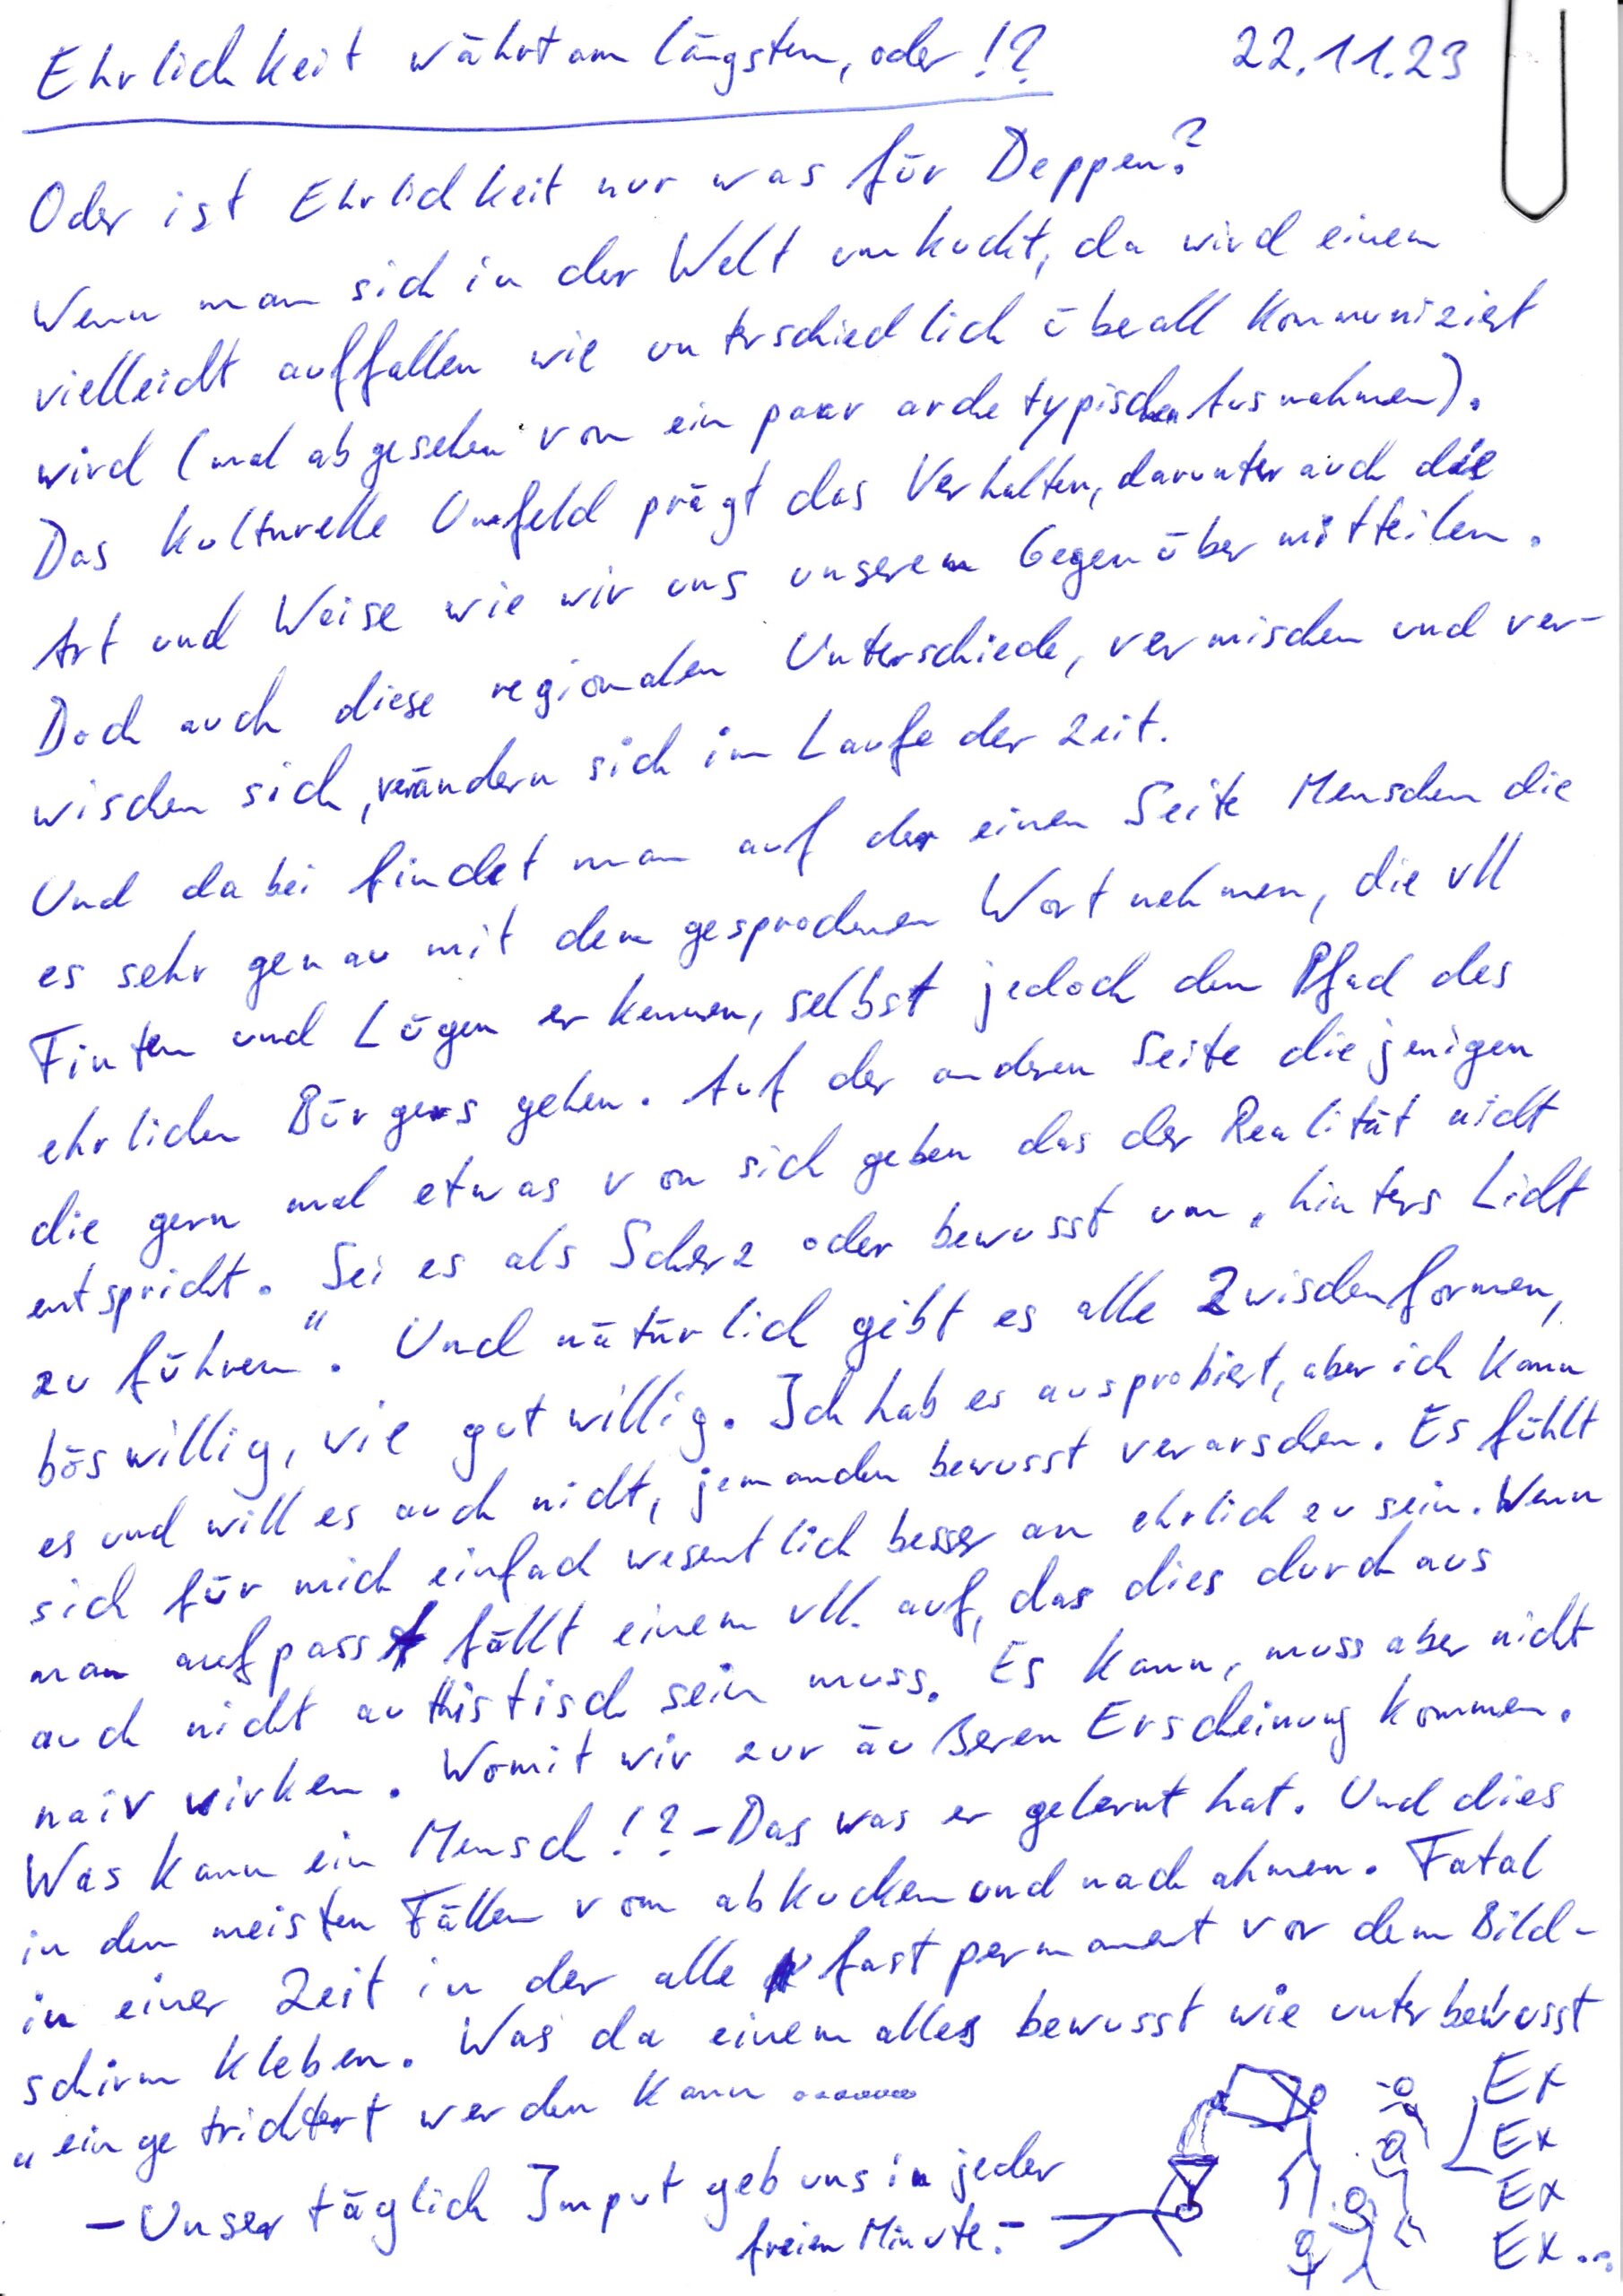 Ehrlichkeit währt am längsten, oder!? 22.11.23
Oder ist Ehrlichkeit nur was für Deppen?
Wenn man sich in der Welt umkuckt, da wird einem
vielleicht auffallen wie unterschiedlich überall kommuniziert
wird (mal abgesehen von ein paar archetypischen Ausnahmen).
Das kulturelle Umfeld prägt das Verhalten, darunter auch die
Art und Weise wie wir uns unserem Gegenüber mitteilen.
Doch auch diese regionalen Unterschiede, vermischen und ver-
wischen sich, verändern sich im Laufe der Zeit.
Und dabei findet man auf der einen Seite Menschen die
es sehr genau mit dem gesprochenen Wort nehmen, die vll
Finten und Lügen erkennen, selbst jedoch den Pfad des
ehrlichen Bürgers gehen. Auf der anderen Seite diejenigen
die gern mal etwas von sich geben das der Realität nicht
entspricht. Sei es als Scherz oder bewusst um „hinters Licht
zu führen". Und natürlich gibt es alle Zwischenformen,
böswillig, wie gutwillig. Ich hab es ausprobiert, aber ich kann
es und will es auch nicht, jemanden bewusst verarschen. Es fühlt
sich für mich einfach wesentlich besser an ehrlich zu sein. Wenn
man aufpasst fällt einem vll. auf, das dies durchaus
auch nicht authistisch sein muss. Es kann, muss aber nicht
naiv wirken. Womit wir zur äußeren Erscheinung kommen.
Was kann ein Mensch!? - Das was er gelernt hat. Und dies
in den meisten Fällen vom abkucken und nachahmen. Fatal
in einer Zeit in der alle fast permanent vor dem Bild-
schirm kleben. Was da einem alles bewusst wie unterbewusst
„eingetrichtert werden kann .......
- Unser täglich Input geb uns in jeder
freien Minute. -
Ex
Ex
Ex
Ex...